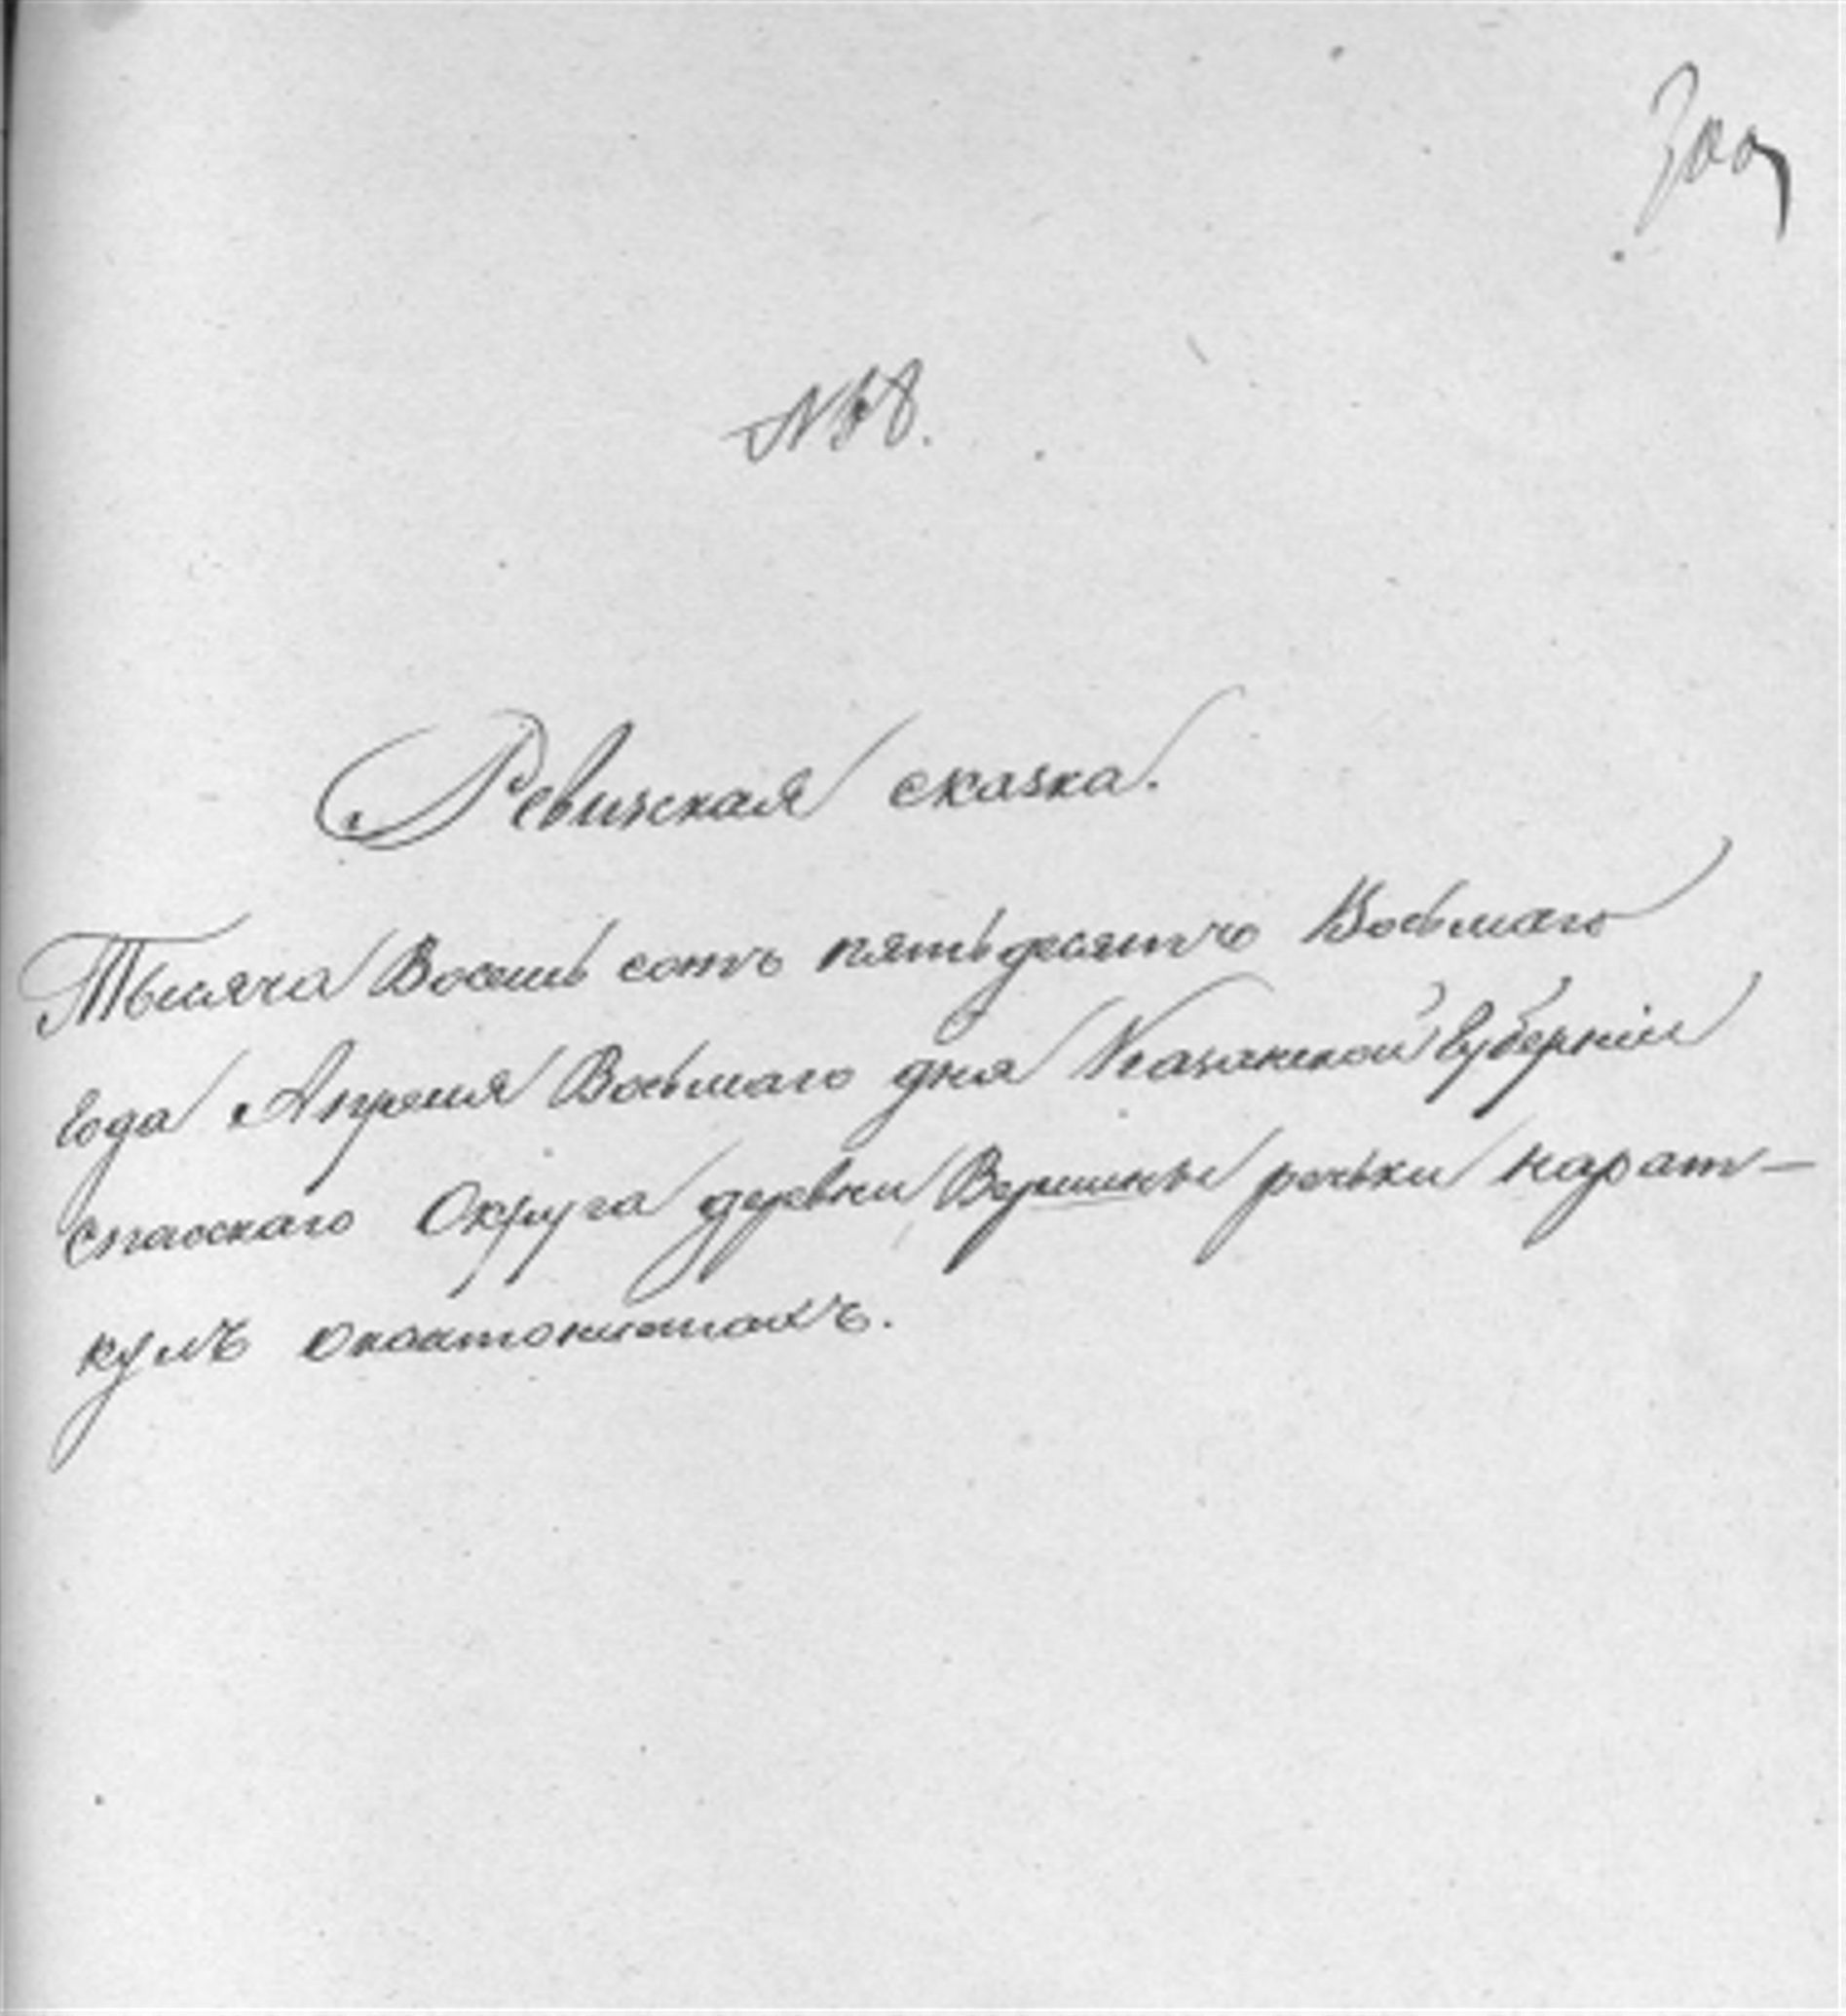 300
№ 8.
Ревизская сказка.
Тысяча Восемь сотъ пятьдесятъ Восьмаго
года Апреля Восьмаго дня Казанской Губерніи
Спасскаго Округа деревни Вершины речьки карат-
кулъ окантонистахъ.